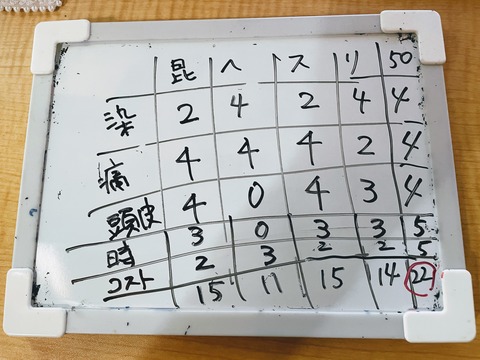 昆 ヘ ス リ 50
染 2 4 2 4 4
痛 4 4 4 2 4
頭皮 4 0 4 3 4
時 3 0 3 3 5
コスト 2 3 2 2 5
15 11 15 14 22